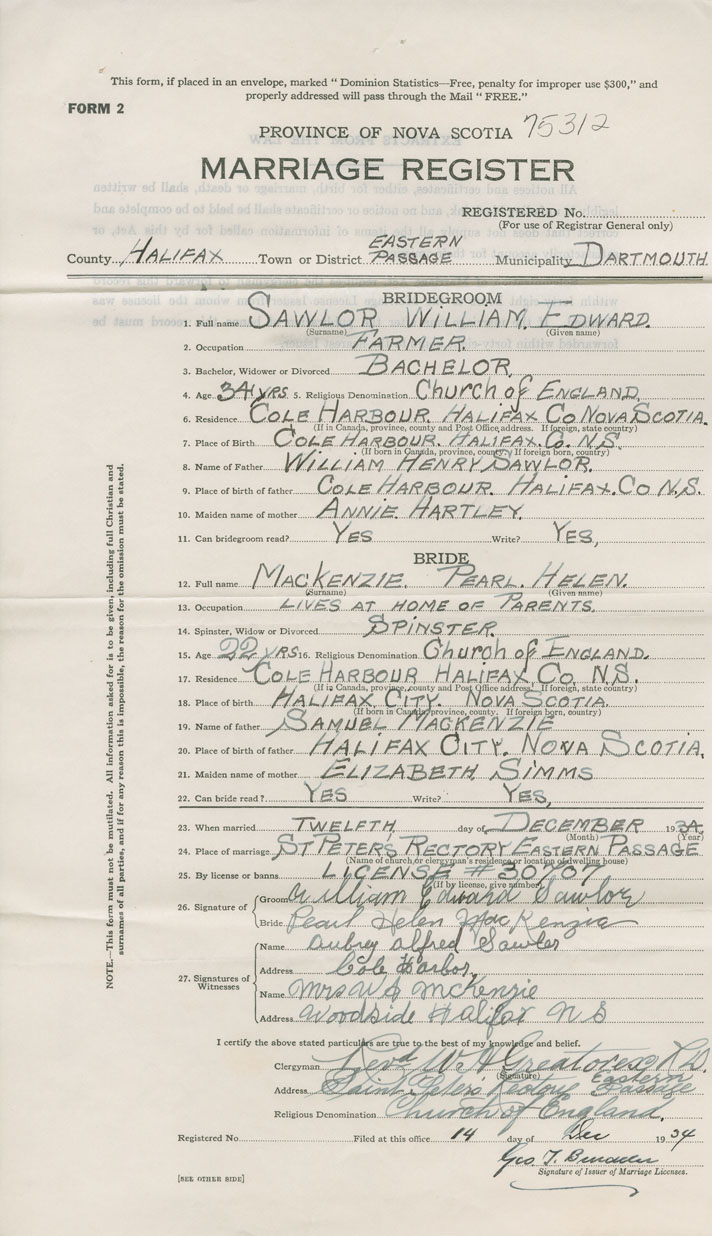 This form, if placed in an envelope, marked " Dominion Statistics—Free, penalty for improper use $300," and
properly addressed will pass through the Mail " FREE."
FORM 2
PROVINCE OF NOVA SCOTIA 75312
MARRIAGE REGISTER
REGISTERED No.
(For use of Registrar General only)
County HALIFAX Town or District EASTERN PASSAGE Municipality DARTMOUTH
BRIDEGROOM
1. Full name SAWLOR WILLIAM. EDWARD.
(Surname) (Given name)
2. Occupation FARMER.
3. Bachelor, Widower or Divorced BACHELOR.
4. Age 34 YRS 5. Religious Denomination Church of ENGLAND.
6. Residence COLE HARBOUR. HALIFAX CO NOVA SCOTIA.
(If in Canada, province, county and Post Office address. If foreign, state country)
7. Place of Birth COLE HARBOUR. HALIFAX. CO. N.S.
(If born in Canada, province, county. If foreign born, country)
8. Name of Father WILLIAM HENRY SAWLOR.
9. Place of birth of father COLE HARBOUR. HALIFAX. CO N.S.
10. Maiden name of mother ANNIE. HARTLEY.
11. Can bridegroom read? YES Write? YES,
BRIDE
12. Full name MACKENZIE. PEARL. HELEN.
(Surname) (Given name)
13. Occupation LIVES AT HOME OF PARENTS.
14. Spinster, Widow or Divorced SPINSTER.
15. Age 22 YRS 16. Religious Denomination Church of ENGLAND.
17. Residence COLE HARBOUR HALIFAX CO. N.S.
(If in Canada, province, county and Post Office address. If foreign, state country)
18. Place of birth HALIFAX CITY. NOVA SCOTIA.
(If born in Canada, province, county. If foreign born, country)
19. Name of father SAMUEL MACKENZIE
20. Place of birth of father HALIFAX CITY. NOVA SCOTIA.
21. Maiden name of mother ELIZABETH SIMMS
22. Can bride read? YES Write? YES,
23. When married TWELFTH day of DECEMBER 1934
(Month) (Year)
24. Place of marriage ST PETERS RECTORY EASTERN PASSAGE
(Name of church or clergyman's residence or location of dwelling house)
25. By license or banns LICENSE # 30707
(If by license, give number)
26. Signature of Groom William Edward Sawlor
Bride Pearl Helen MacKenzie
27. Signatures of Witnesses
Name Aubrey Alfred Sawler
Address Cole Harbor,
Name Mrs W S McKenzie
Address Woodside Halifax N S
I certify the above stated particulars are true to the best of my knowledge and belief.
Clergyman Revd W H Greatorex
(Signature)
Address Saint Peters Rectory Eastern Passage
Religious Denomination Church of England.
Registered No. Filed at this office 14 day of Dec 1934
Geo. T.
Signature of Issuer of Marriage Licenses.
[SEE OTHER SIDE]
NOTE.—This form must not be mutilated. All information asked for is to be given, including full Christian and
surnames of all parties, and if for any reason this is impossible, the reason for the omission must be stated.